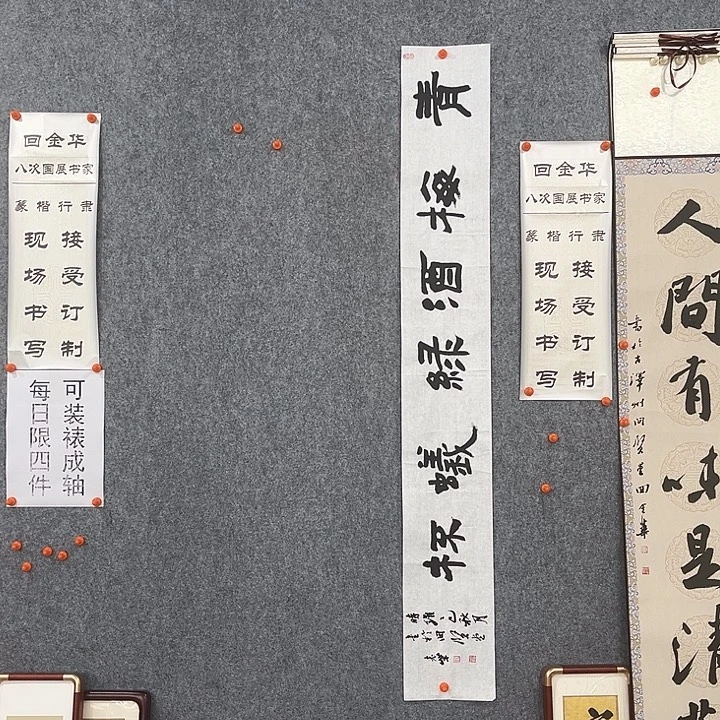 回金华
八次国展书家
篆楷行隶
接受订制
现场书写
可装裱成轴
每日限四件
青酒緑蟻
回金华
八次国展书家
篆楷行隶
接受订制
现场书写
人間有味是清